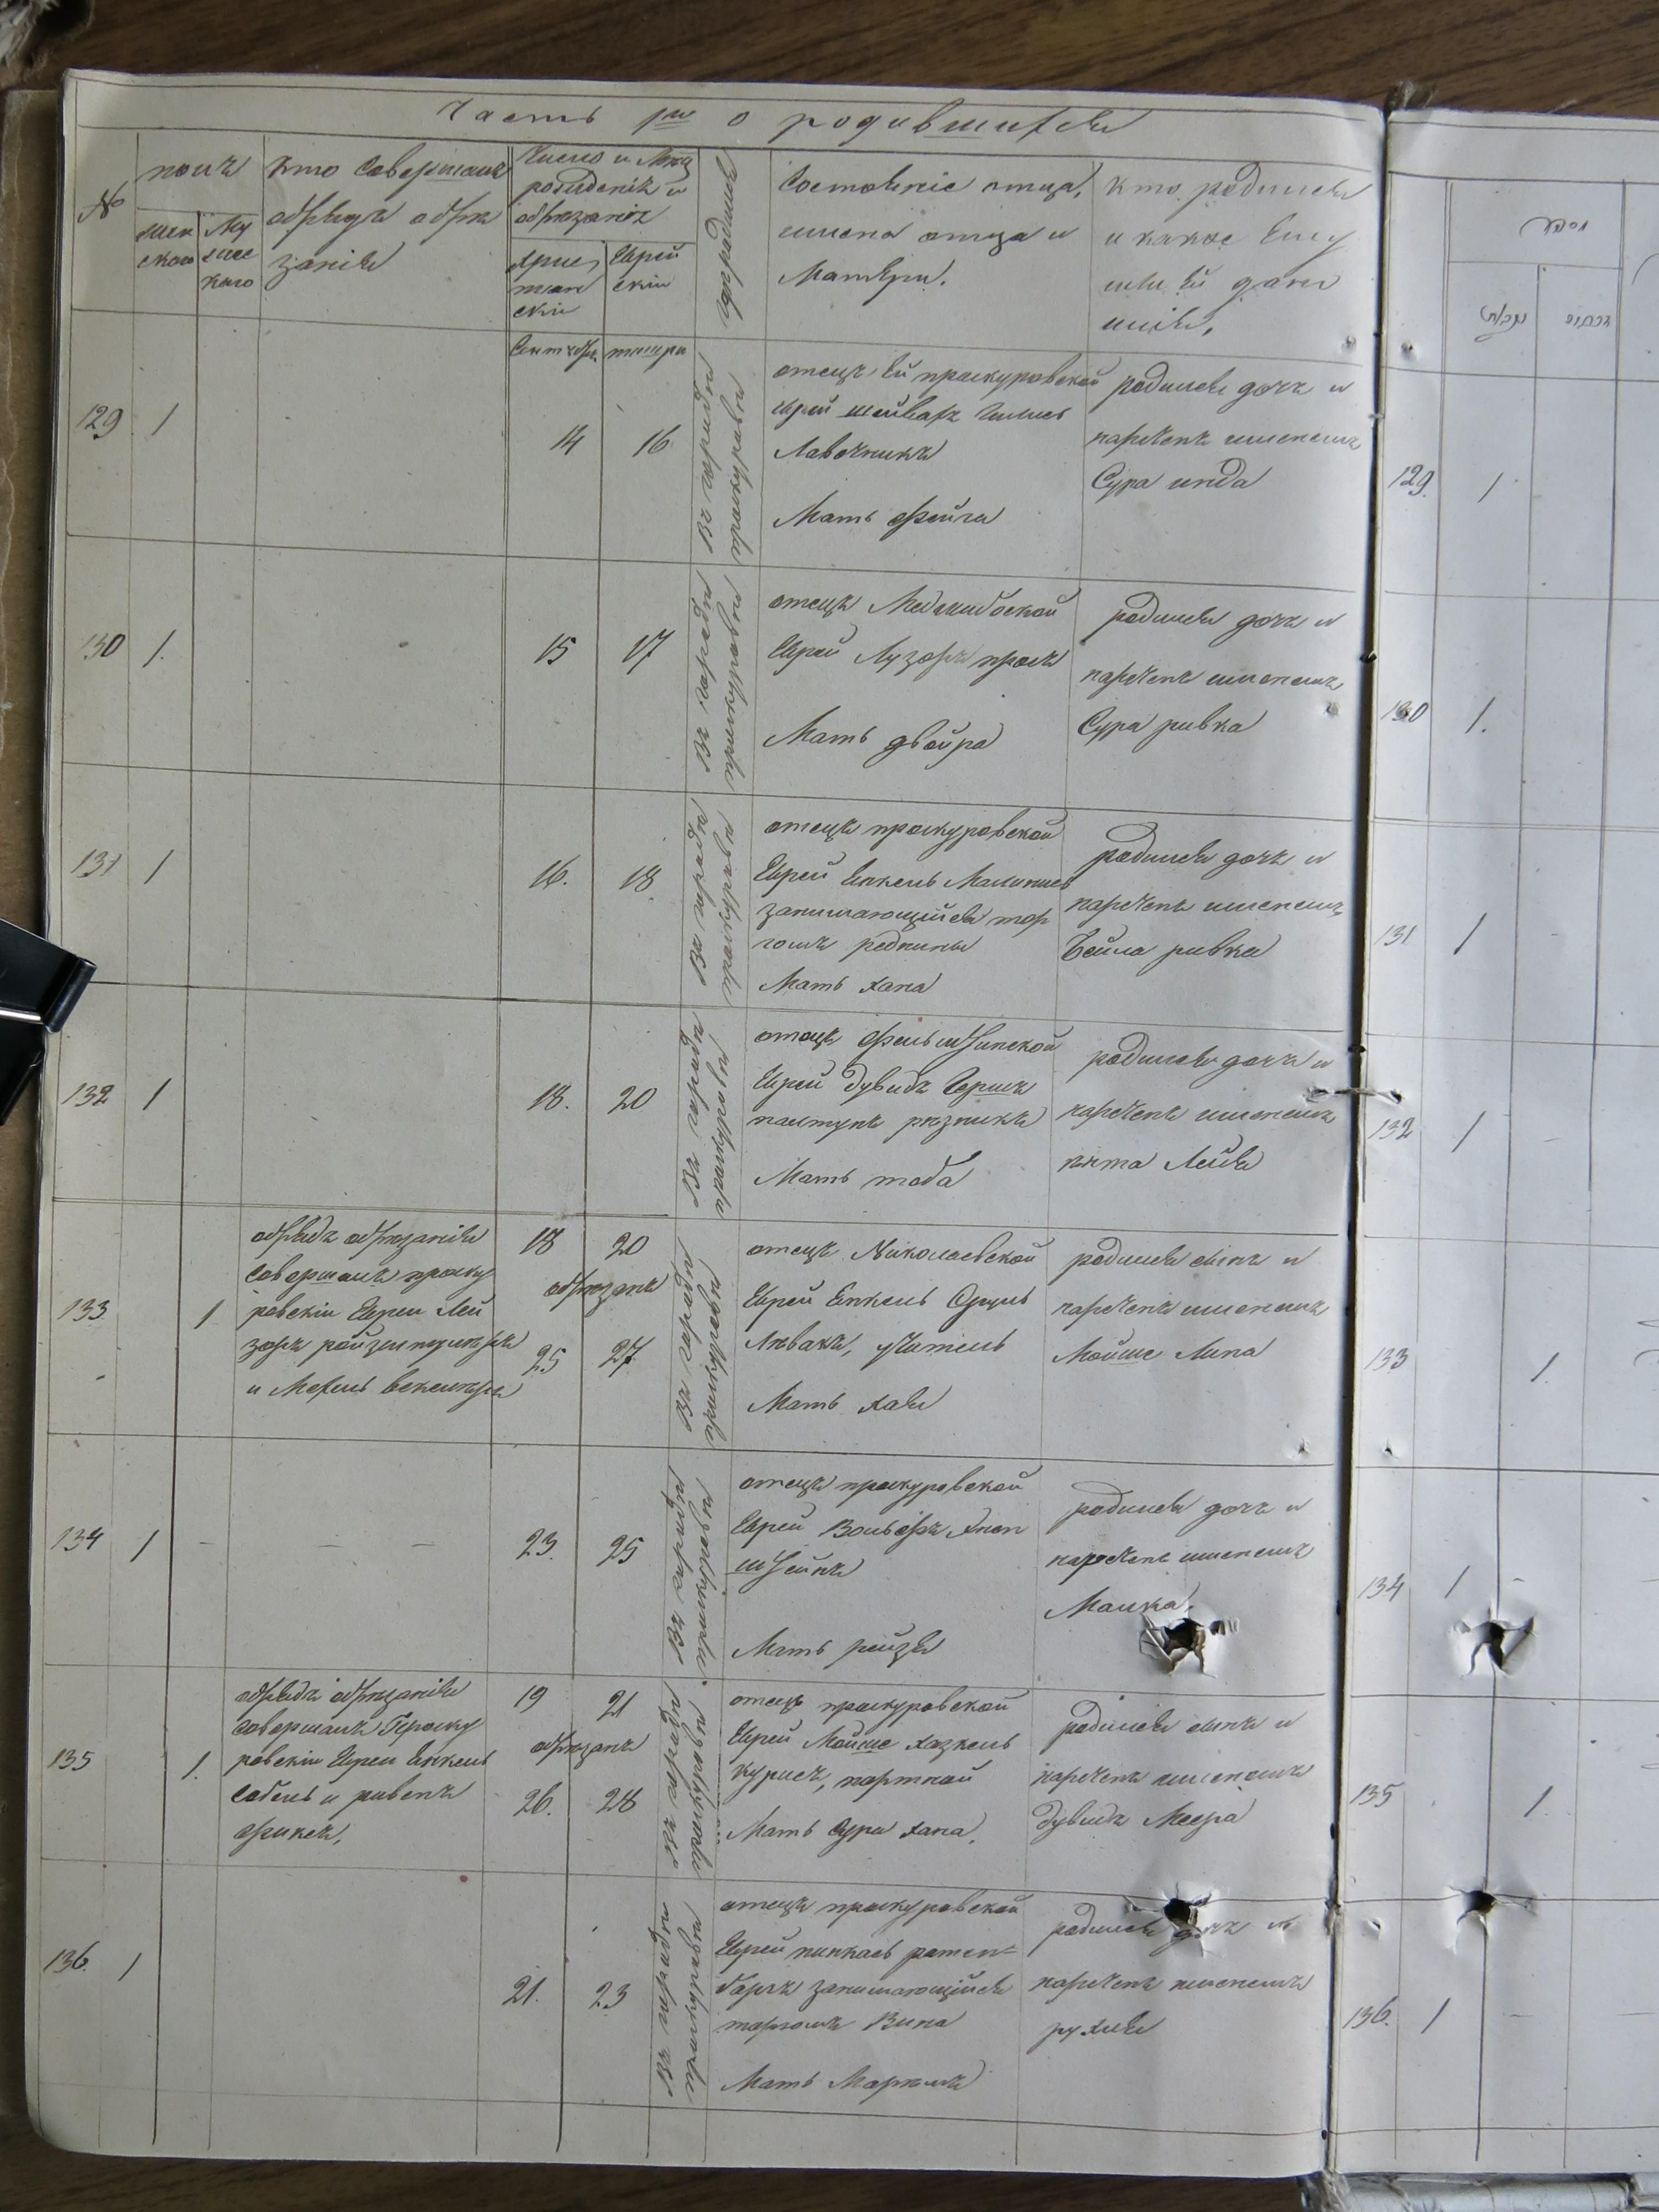 Часть 1ая о родившихся
№
полъ
женскаго
мужескаго
кто совершалъ
обрядъ обрѣзанія
Число и Мѣсяцъ
рожденія и
обрѣзанія
Христианскій
Еврейскій
гдѣ родился
Состояніе отца,
имена отца и
Матери.
кто родился
и какое Ему
или Ей дано
имя.
Сентября
тишри
129
1
14
16
Въ городѣ
проскуровѣ
отецъ Ей проскуровской
Еврей
Лавочникъ
Мать Фейга
родилась дочь и
наречена именемъ
Сура инда
130
1.
15
17
Въ городѣ
проскуровѣ
отецъ Меджибоской
Еврей Лузоръ
Мать двойра
родилась дочь и
наречена именемъ
Сура ривка
131
1
16.
18
Въ городѣ
проскуровѣ
отецъ проскуровской
Еврей Янкель
занимающійся тор
гомъ
Мать хана
родилась дочь и
наречена именемъ
Бейла ривка
132
1
18.
20
Въ городѣ
проскуровѣ
отецъ Фельштинской
Еврей Дувидъ Гершъ
рѣзникъ
Мать тоба
родилась дочь и
наречена именемъ
Лейя
133
1
обрядъ обрѣзанія
совершалъ проску
ровскій Еврей Лей
зоръ
и Мехель
18
20
обрѣзанъ
25
27
Въ городѣ
проскуровѣ
отецъ Николаевской
Еврей Янкель
учитель
Мать хая
родился сынъ и
нареченъ именемъ
Мойше Липа
134
1
23.
25
Въ городѣ
проскуровѣ
отецъ проскуровской
Еврей Вольфъ Эпен
штейнъ
Мать рейзя
родилась дочь и
наречена именемъ
Малка.
135
1.
обрядъ обрѣзанія
совершалъ Проску
ровскій Еврей Янкель
Собель и ривенъ
19
21
обрѣзанъ
26.
28
Въ городѣ
проскуровѣ
отецъ проскуровской
Еврей Мойше хазкель
портной
Мать Сура хана,
родился сынъ и
нареченъ именемъ
Дувидъ Меера
136.
1
21.
23
Въ городѣ
проскуровѣ
отецъ проскуровской
Еврей пинхась розен=
занимающійся
торгомъ Вина
Мать
родилась дочь и
наречена именемъ
рухля
129.
1
130
1.
131
1
132
1
133
1.
134
1
135
1.
136.
1